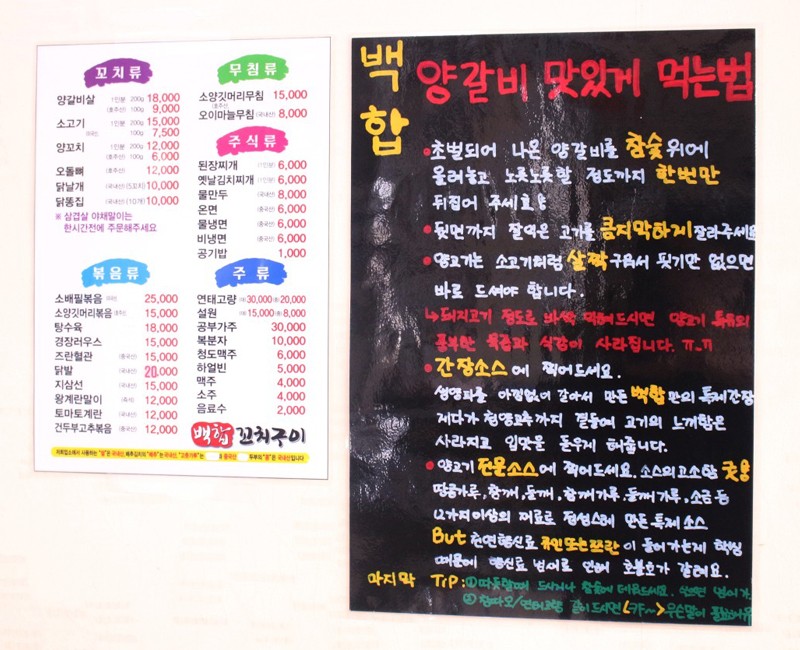 꼬치류
양갈비살 1인분 200g 18,000
(호주산) 100g 9,000
소고기 1인분 200g 15,000
100g 7,500
양꼬치 1인분 200g 12,000
(호주산) 100g 6,000
오돌뼈 (호주산) 12,000
닭날개 (국내산) (5꼬치) 10,000
닭똥집 (국내산) (10개) 10,000
※ 삼겹살 야채말이는
한시간전에 주문해주세요
무침류
소양깃머리무침 15,000
(호주산)
오이마늘무침 (국내산) 8,000
주식류
된장찌개 (1인분) 6,000
옛날김치찌개 (1인분) 6,000
물만두 (국내산) 8,000
온면 (중국산) 6,000
물냉면 (중국산) 6,000
비냉면 (중국산) 6,000
공기밥 1,000
볶음류
소배필볶음 25,000
소양깃머리볶음 (호주산) 15,000
탕수육 18,000
경장러우스 15,000
즈란혈관 (중국산) 15,000
닭발 (국내산) 20,000
지삼선 (국내산) 15,000
왕계란말이 (즉석) 12,000
토마토계란 (국내산) 12,000
건두부고추볶음 (중국산) 12,000
주류
연태고량 (대) 30,000 (소) 20,000
설원 (대) 15,000 (소) 8,000
공부가주 30,000
복분자 10,000
청도맥주 6,000
하얼빈 5,000
맥주 4,000
소주 4,000
음료수 2,000
백합 꼬치구이
저희업소에서 사용하는 "쌀"은 국내산, 배추김치의 "배추"는 국내산, "고춧가루"는 중국산 두부의 "콩"은 국내산입니다
백합
양갈비 맛있게 먹는법
초벌되어 나온 양갈비를 참숯위에
올려놓고 노릇노릇할 정도까지 한번만
뒤집어 주세요
뒷면까지 잘익은 고기를 큼지막하게 잘라주세요
양고기는 소고기처럼 살짝 구워서 핏기만 없으면
바로 드셔야 합니다.
↳ 돼지고기 정도로 바싹 익혀 드시면 양고기 특유의
풍부한 육즙과 식감이 사라집니다. ㅠ_ㅠ
간장소스에 찍어드세요.
생양파를 아낌없이 갈아서 만든 백합만의 특제간장
게다가 청양고추까지 곁들여 고기의 느끼함은
사라지고 입맛을 돋우게 해줍니다.
양고기 전문소스에 찍어드세요. 소스의 고소함
땅콩가루, 참깨, 들깨, 참깨가루, 들깨가루, 소금 등
12가지이상의 재료로 정성스레 만든 특제소스
But 천연향신료 쿠민또는쯔란이 들어가는게 핵심
때문에 향신료 냄새로 인해 호불호가 갈려요.
마지막 TIP: ① 따뜻할때 드시거나 참숯에 데워드세요.
② 칭따오/연태고량 같이드시면